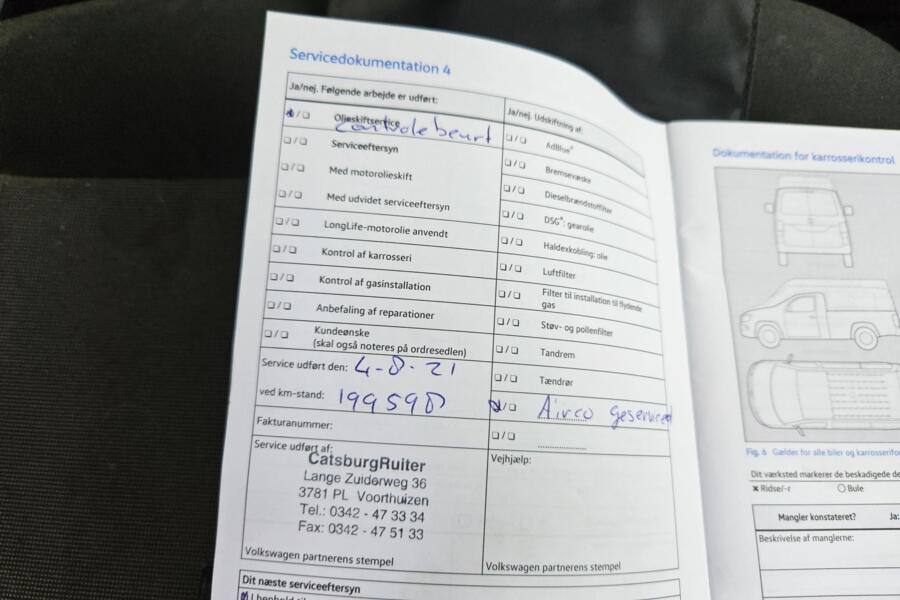 Servicedokumentation 4
Ja/nej. Følgende arbejde er udført:
☐/☐ Olieskiftservice
Controlebeurt
☐/☐ Serviceeftersyn
☐/☐ Med motorolieskift
☐/☐ Med udvidet serviceeftersyn
☐/☐ LongLife-motorolie anvendt
☐/☐ Kontrol af karrosseri
☐/☐ Kontrol af gasinstallation
☐/☐ Anbefaling af reparationer
☐/☐ Kundeønske
(skal også noteres på ordresedlen)
Service udført den: 4-8-21
ved km-stand: 199598
Fakturanummer:
Service udført af:
CatsburgRuiter
Lange Zuiderweg 36
3781 PL Voorthuizen
Tel.: 0342 - 47 33 34
Fax: 0342 - 47 51 33
Volkswagen partnerens stempel
Dit næste serviceeftersyn
Ja/nej. Udskiftning af:
☐/☐ AdBlue®
☐/☐ Bremsevæske
☐/☐ Dieselbrændstoffilter
☐/☐ DSG®: gearolie
☐/☐ Haldexkobling: olie
☐/☐ Luftfilter
☐/☐ Filter til installation til flydende
gas
☐/☐ Støv- og pollenfilter
☐/☐ Tandrem
☐/☐ Tændrør
☐/☐ Airco geserviced
☐/☐
Vejhjælp:
Volkswagen partnerens stempel
Dokumentation for karrosserikontrol
Fig. 6 Gælder for alle biler og
Dit værksted markerer de beskadigede
x Ridse/-r ○ Bule
Mangler konstateret? Ja:
Beskrivelse af manglerne: